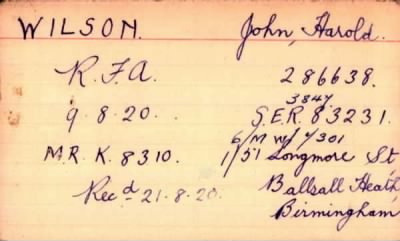 WILSON. John, Harold.
R.F.A. 286638.
3847
9.8.20. S.E.R. 83231.
6/M W/ 4/301
M.R.K. 8310. 1/51 Longmore St
Rec^d 21.8.20. Ballsall Heath
Birmingham